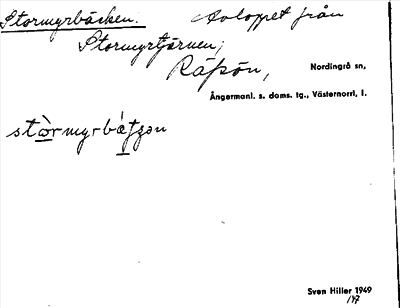 Stormyrbäcken. Avloppet från
Stormyrtjärnen;
Räfsön, Nordingrå sn,
Ångermanl. s. doms. tg., Västernorrl, l.
stòrmyrbæ̀tʃən
Sven Hiller 1949